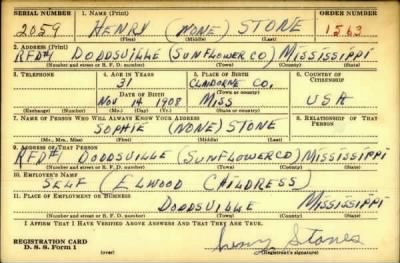 SERIAL NUMBER 1. NAME (Print) ORDER NUMBER
2059 HENRY (NONE) STONE 1563
(First) (Middle) (Last)
2. ADDRESS (Print)
RFD#1 DODDSVILLE (SUNFLOWER CO) MISSISSIPPI
(Number and street or R. F. D. number) (Town) (County) (State)
3. TELEPHONE 4. AGE IN YEARS 5. PLACE OF BIRTH 6. COUNTRY OF CITIZENSHIP
31 CLAIBORNE CO,
DATE OF BIRTH (Town or county)
NOV 14 1908 MISS USA
(Exchange) (Number) (Mo.) (Day) (Yr.) (State or country)
7. NAME OF PERSON WHO WILL ALWAYS KNOW YOUR ADDRESS 8. RELATIONSHIP OF THAT PERSON
SOPHIE (NONE) STONE
(Mr., Mrs., Miss) (First) (Middle) (Last)
9. ADDRESS OF THAT PERSON
RFD#1 DODDSVILLE (SUNFLOWER CO) MISSISSIPPI
(Number and street or R. F. D. number) (Town) (County) (State)
10. EMPLOYER'S NAME
SELF (ELWOOD CHILDRESS)
11. PLACE OF EMPLOYMENT OR BUSINESS
DODDSVILLE MISSISSIPPI
(Number and street or R. F. D. number) (Town) (County) (State)
I AFFIRM THAT I HAVE VERIFIED ABOVE ANSWERS AND THAT THEY ARE TRUE.
REGISTRATION CARD
D. S. S. Form 1 (over) Henry Stones
(Registrant's signature)